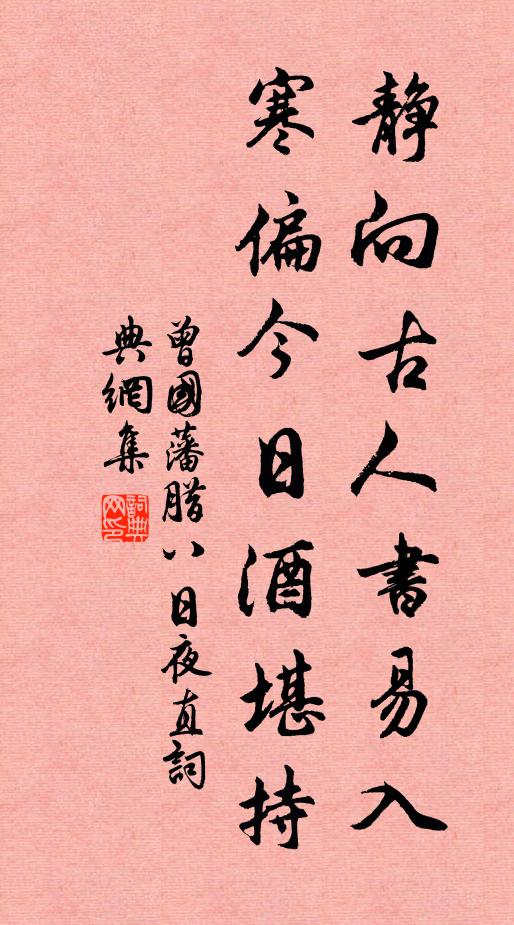 静向古人書易入
寒偏今日酒堪持
曾國藩腊八日夜直詞
典網集
詞典网印